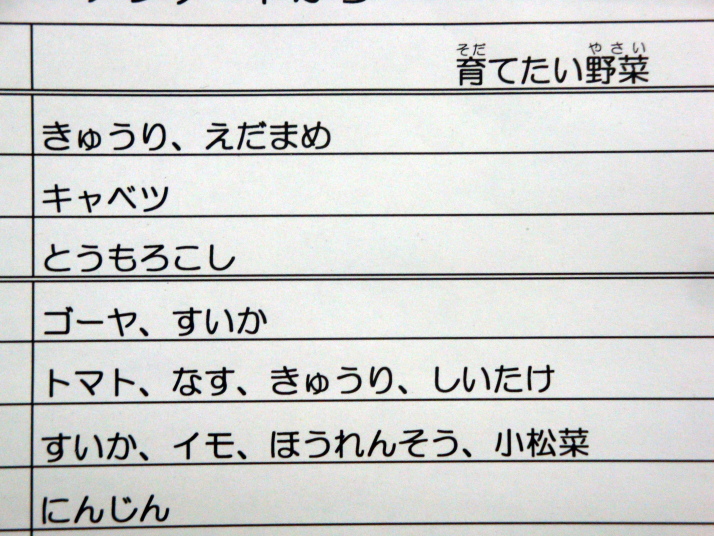 育てたい野菜
きゅうり、えだまめ
キャベツ
とうもろこし
ゴーヤ、すいか
トマト、なす、きゅうり、しいたけ
すいか、イモ、ほうれんそう、小松菜
にんじん